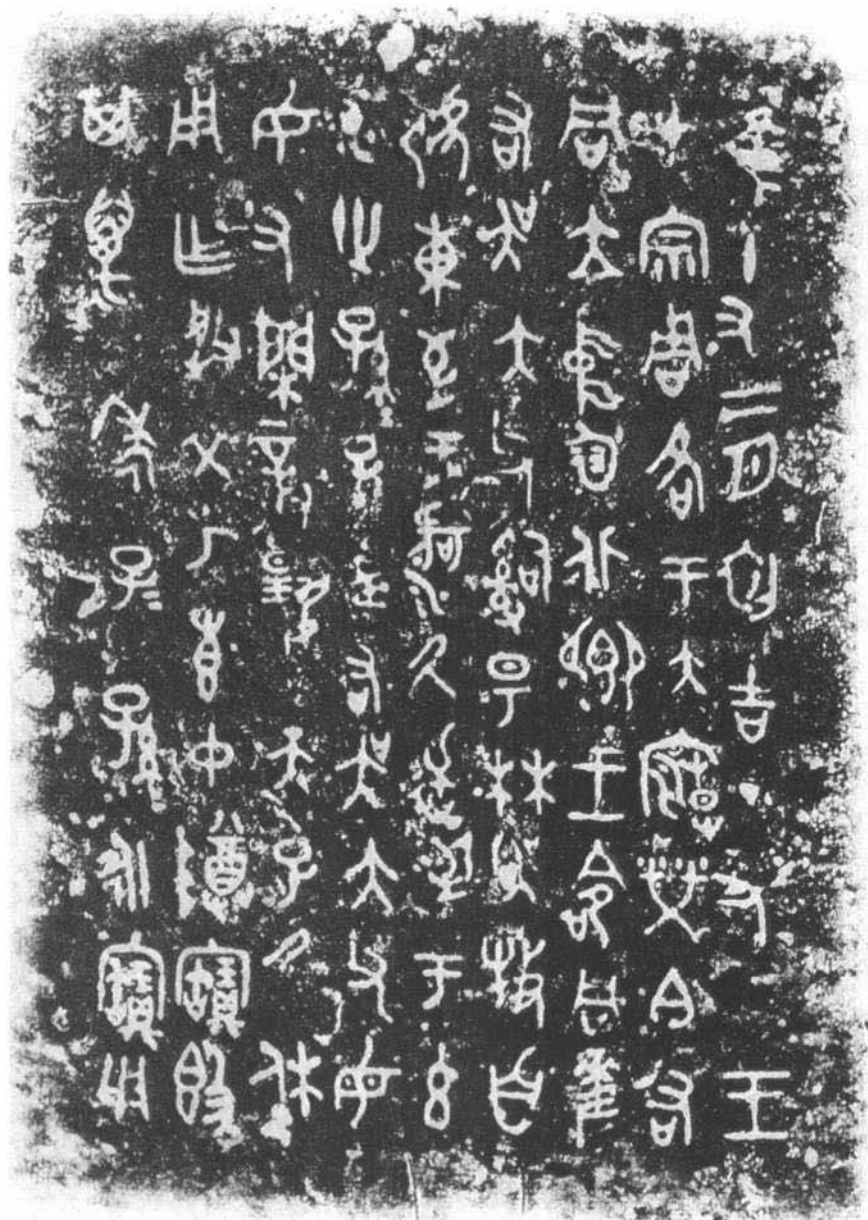 隹十又二月初吉丁丑王
才宗周各于大廟榮白右
同立中廷北鄉王命同左
右吳大父司易林吳牧自
淲東至于河厥逆至于玄
水世孫孫子子左右吳大父毋
女又閑對揚天子厥休
用乍朕文考惠中尊寶簋
其萬年子子孫孫永寶用